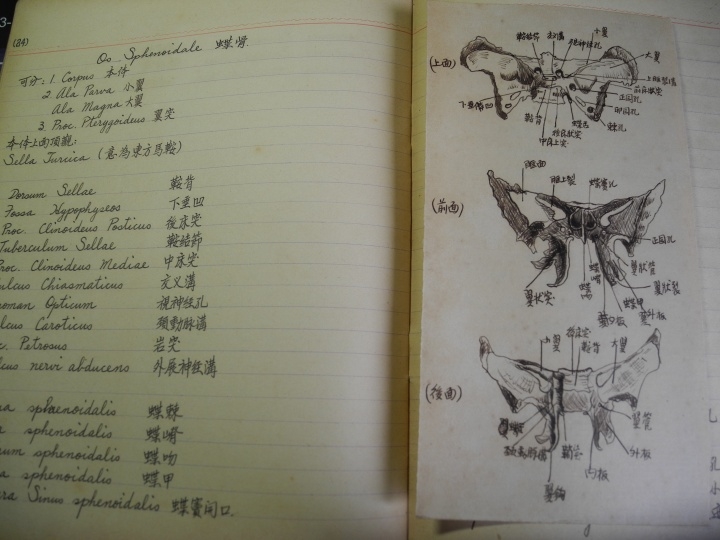 (84)
Os Sphenoidale 蝶骨
可分: 1. Corpus 本体
2. Ala Parva 小翼
Ala Magna 大翼
3. Proc. Pterygoideus 翼突
本体上面頂觀:
Sella Turcica (意為東方馬鞍)
Dorsum Sellae 鞍背
Fossa Hypophyseos 下垂凹
Proc. Clinoideus Posticus 後床突
Tuberculum Sellae 鞍結節
Proc. Clinoideus Mediae 中床突
ulcus Chiasmaticus 交叉溝
oraman Opticum 視神経孔
lcus Caroticus 頸動脈溝
c. Petrosus 岩突
cus nervi abducens 外展神経溝
na sphaenoidalis 蝶棘
a sphenoidalis 蝶嵴
um sphenoidalis 蝶吻
a sphenoidalis 蝶甲
ra Sinus sphenoidalis 蝶竇開口
(上面)
鞍結節
交叉溝
視神経孔
小翼
大翼
上眼裂溝
前床突
正圓孔
卵圓孔
棘孔
下垂凹
鞍背
後床突
中床突
(前面)
眼面
眼上裂
蝶竇孔
正圓孔
翼狀管
翼狀裂
蝶嵴
蝶吻
蝶甲
翼狀突
翼内板
翼外板
(後面)
小翼
後床突
鞍背
大翼
翼管
頸動脈溝
外板
内板
翼鈎